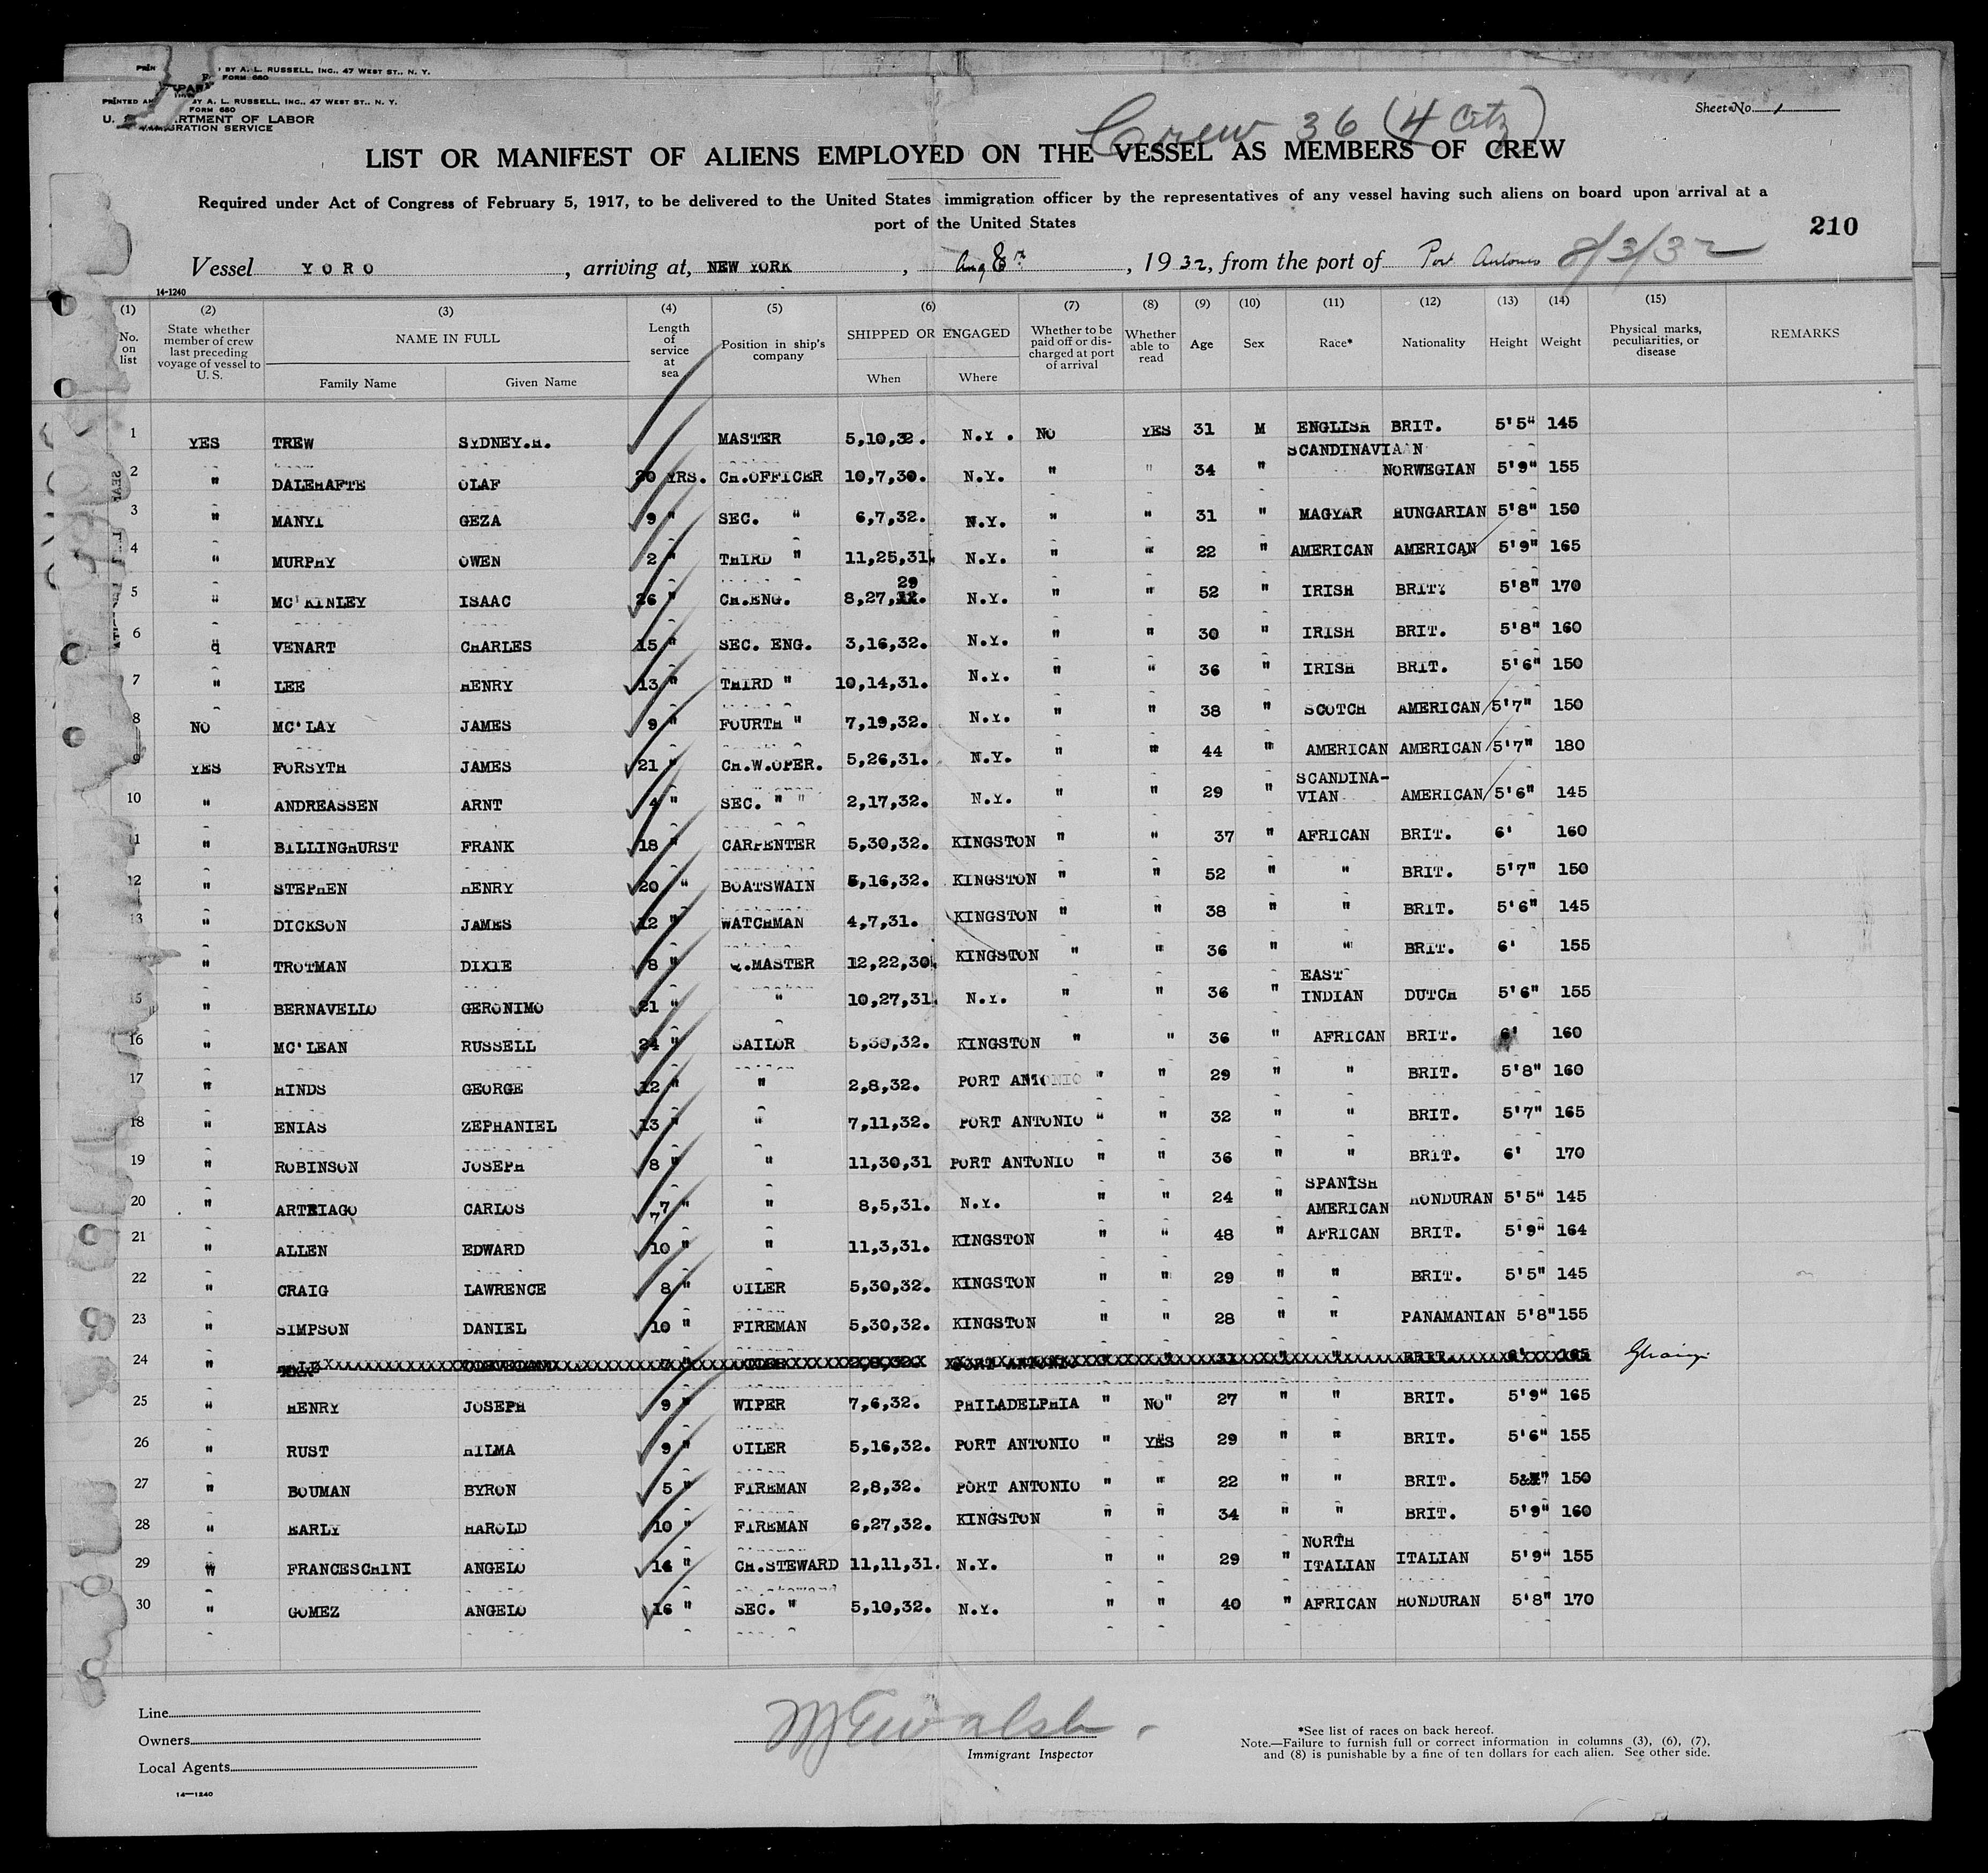 BY A. L. RUSSELL, INC., 47 WEST ST., N. Y.
FORM 680
PRINTED AN BY A. L. RUSSELL, INC., 47 WEST ST., N. Y.
FORM 680
U. S. DEPARTMENT OF LABOR
IMMIGRATION SERVICE
Crew 36 (4 Citz)
Sheet No. 1
LIST OR MANIFEST OF ALIENS EMPLOYED ON THE VESSEL AS MEMBERS OF CREW
Required under Act of Congress of February 5, 1917, to be delivered to the United States immigration officer by the representatives of any vessel having such aliens on board upon arrival at a
port of the United States
210
Vessel YORO, arriving at, NEW YORK, Aug 8th, 1932, from the port of Port Antonio 8/3/32
14-1240
(1) (2) (3) (4) (5) (6) (7) (8) (9) (10) (11) (12) (13) (14) (15)
No. on list | State whether member of crew last preceding voyage of vessel to U. S. | NAME IN FULL | Length of service at sea | Position in ship's company | SHIPPED OR ENGAGED | Whether to be paid off or discharged at port of arrival | Whether able to read | Age | Sex | Race* | Nationality | Height | Weight | Physical marks, peculiarities, or disease | REMARKS
Family Name | Given Name | When | Where
1 YES TREW SYDNEY.H. MASTER 5,10,32. N.Y. NO YES 31 M ENGLISH BRIT. 5'5" 145
2 " DALEHAFTE OLAF 20 YRS. CH.OFFICER 10,7,30. N.Y. " " 34 " SCANDINAVIAAN NORWEGIAN 5'9" 155
3 " MANYI GEZA 9 " SEC. " 6,7,32. N.Y. " " 31 " MAGYAR HUNGARIAN 5'8" 150
4 " MURPHY OWEN 2 " THIRD " 11,25,31. N.Y. " " 22 " AMERICAN AMERICAN 5'9" 165
5 " MC'KINLEY ISAAC 26 " CH.ENG. 8,27,29 N.Y. " " 52 " IRISH BRIT. 5'8" 170
6 " VENART CHARLES 15 " SEC. ENG. 3,16,32. N.Y. " " 30 " IRISH BRIT. 5'8" 160
7 " LEE HENRY 13 " THIRD " 10,14,31. N.Y. " " 36 " IRISH BRIT. 5'6" 150
8 NO MC'LAY JAMES 9 " FOURTH " 7,19,32. N.Y. " " 38 " SCOTCH AMERICAN 5'7" 150
9 YES FORSYTH JAMES 21 " CH.W.OPER. 5,26,31. N.Y. " " 44 " AMERICAN AMERICAN 5'7" 180
10 " ANDREASSEN ARNT 4 " SEC. " " 2,17,32. N.Y. " " 29 " SCANDINA-VIAN AMERICAN 5'6" 145
11 " BILLINGHURST FRANK 18 " CARPENTER 5,30,32. KINGSTON " " 37 " AFRICAN BRIT. 6' 160
12 " STEPHEN HENRY 20 " BOATSWAIN 5,16,32. KINGSTON " " 52 " " BRIT. 5'7" 150
13 " DICKSON JAMES 12 " WATCHMAN 4,7,31. KINGSTON " " 38 " " BRIT. 5'6" 145
" TROTMAN DIXIE 8 " Q.MASTER 12,22,30. KINGSTON " " 36 " " BRIT. 6' 155
15 " BERNAVELLO GERONIMO 21 " " 10,27,31. N.Y. " " 36 " EAST INDIAN DUTCH 5'6" 155
16 " MC'LEAN RUSSELL 24 " SAILOR 5,30,32. KINGSTON " " 36 " AFRICAN BRIT. 6' 160
17 " HINDS GEORGE 12 " " 2,8,32. PORT ANTONIO " " 29 " " BRIT. 5'8" 160
18 " ENIAS ZEPHANIEL 13 " " 7,11,32. PORT ANTONIO " " 32 " " BRIT. 5'7" 165
19 " ROBINSON JOSEPH 8 " " 11,30,31 PORT ANTONIO " " 36 " " BRIT. 6' 170
20 " ARTEIAGO CARLOS 7 " " 8,5,31. N.Y. " " 24 " SPANISH AMERICAN HONDURAN 5'5" 145
21 " ALLEN EDWARD 10 " " 11,3,31. KINGSTON " " 48 " AFRICAN BRIT. 5'9" 164
22 " CRAIG LAWRENCE 8 " OILER 5,30,32. KINGSTON " " 29 " " BRIT. 5'5" 145
23 " SIMPSON DANIEL 10 " FIREMAN 5,30,32. KINGSTON " " 28 " " PANAMANIAN 5'8" 155
24 " CLEVELAND 7 " OILER 2,8,32. PORT ANTONIO " " 31 " " BRIT. 6' 165
25 " HENRY JOSEPH 9 " WIPER 7,6,32. PHILADELPHIA " NO" 27 " " BRIT. 5'9" 165
26 " RUST HILMA 9 " OILER 5,16,32. PORT ANTONIO " YES 29 " " BRIT. 5'6" 155
27 " BOUMAN BYRON 5 " FIREMAN 2,8,32. PORT ANTONIO " " 22 " " BRIT. 150
28 " EARLY HAROLD 10 " FIREMAN 6,27,32. KINGSTON " " 34 " " BRIT. 5'9" 160
29 " FRANCESCHINI ANGELO 16 " CH.STEWARD 11,11,31. N.Y. " " 29 " NORTH ITALIAN ITALIAN 5'9" 155
30 " GOMEZ ANGELO 16 " SEC. " 5,10,32. N.Y. " " 40 " AFRICAN HONDURAN 5'8" 170
Line
Owners
Local Agents
14—1240
M E Walsh.
Immigrant Inspector
*See list of races on back hereof.
Note.—Failure to furnish full or correct information in columns (3), (6), (7),
and (8) is punishable by a fine of ten dollars for each alien. See other side.